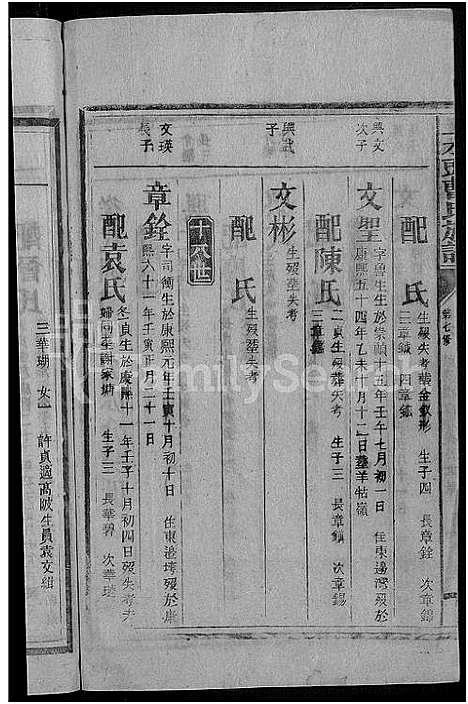 配 氏 生歿失考葬金釵形 生子四 長章銓 次章錫
三章鎮 四章鏴
興文
次子
文聖 字魯生生於崇禎十五年壬午七月初一日 住東邊灣歿於
康熙五十四年乙未十月十二日葬羊牯嶺
配陳氏 二貞生歿葬失考 生子三 長章鎮 次章錫
三章鏴
興武
子
文彬 生歿葬失考
配 氏 生歿葬失考
十八世
文瑛
長子
章銓 字司衡生於康熙元年壬寅十月初十日 住東邊塆歿於康
熙六十一年壬寅正月二十一日
配袁氏 冬貞生於康熙十一年壬子十月初四日歿失考夫
生子三 長華碧 次華璉
三華瑚 女一 許貞適高陂生員袁文組
FamilySearch